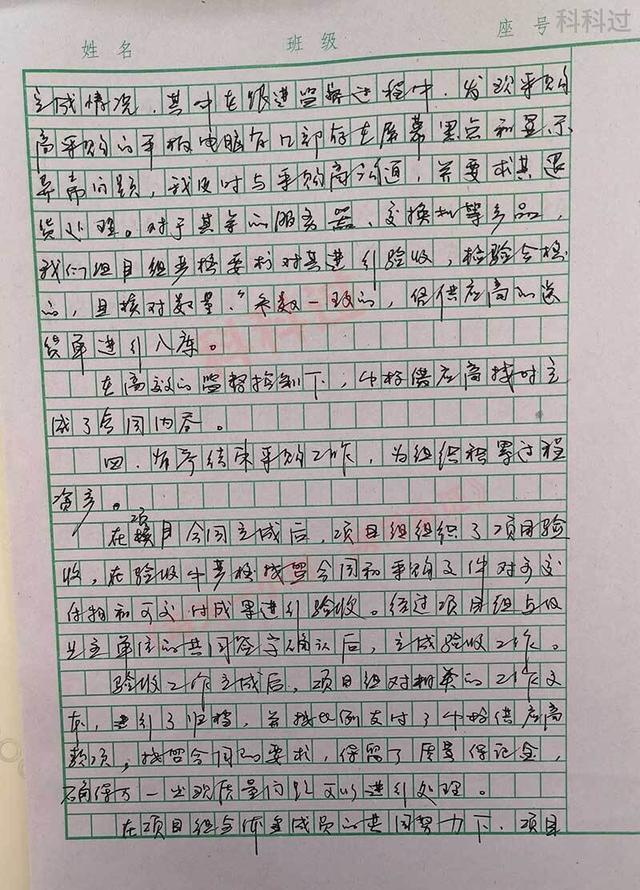 科科过
姓名 班级 座号
完成情况,其中在跟进监督过程中,发现采购
商采购的平板电脑有几部存在屏幕黑点和显示
异常问题,我及时与采购商沟通,并要求其退
货处理。对于其等的服务器、交换机等产品,
我们组目组严格要求对其进行验收,检验合格
的,且核对数量、参数一致的,给供应商的送
货单进行入库。
在高效的监督控制下,中标供应商按时完
成了合同内容。
四、有序结束采购工作,为组织积累过程
资产。
在项目合同完成后,项目组组织了项目验
收,在验收中严格按照合同和采购文件对可交
付物和可交付成果进行验收。经过项目组与
业主单位的共同签字确认后,完成验收工作。
验收工作完成后,项目组对相关的工作文
本,进行了归档,并按比例支付了中标供应商
款项,按照合同的要求,保留了质量保证金,
确保万一出现质量问题可以进行处理。
在项目组全体全成员的共同努力下,项目